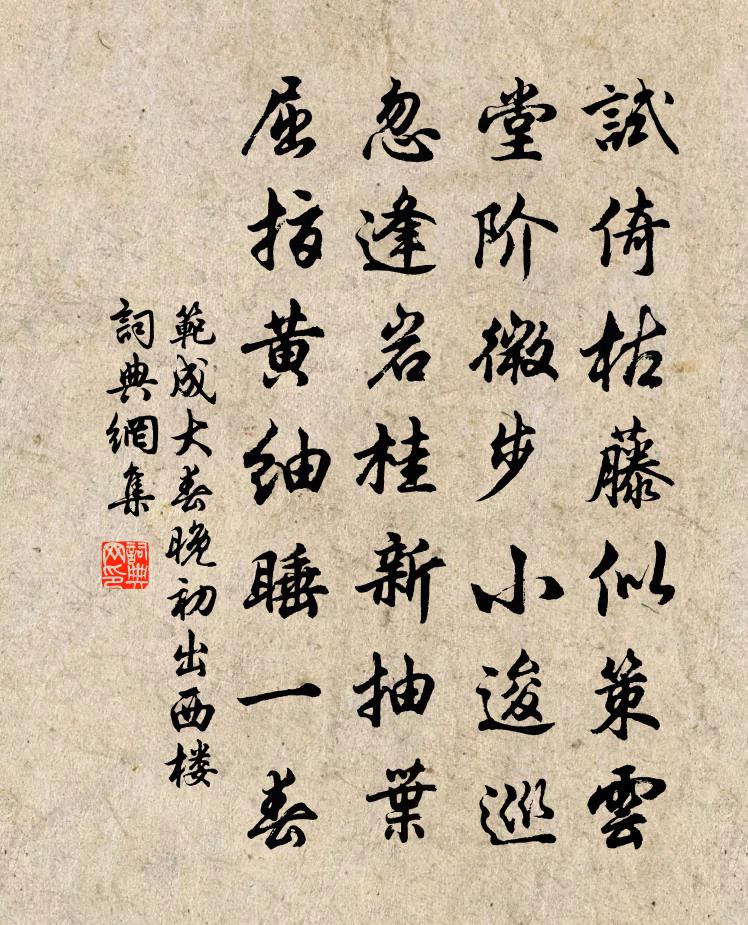 試倚枯藤似策雲
堂阶微步小逡巡
忽逢岩桂新抽葉
屈指黄紬睡一春
範成大春晚初出西楼
詞典網集
詞典
网印